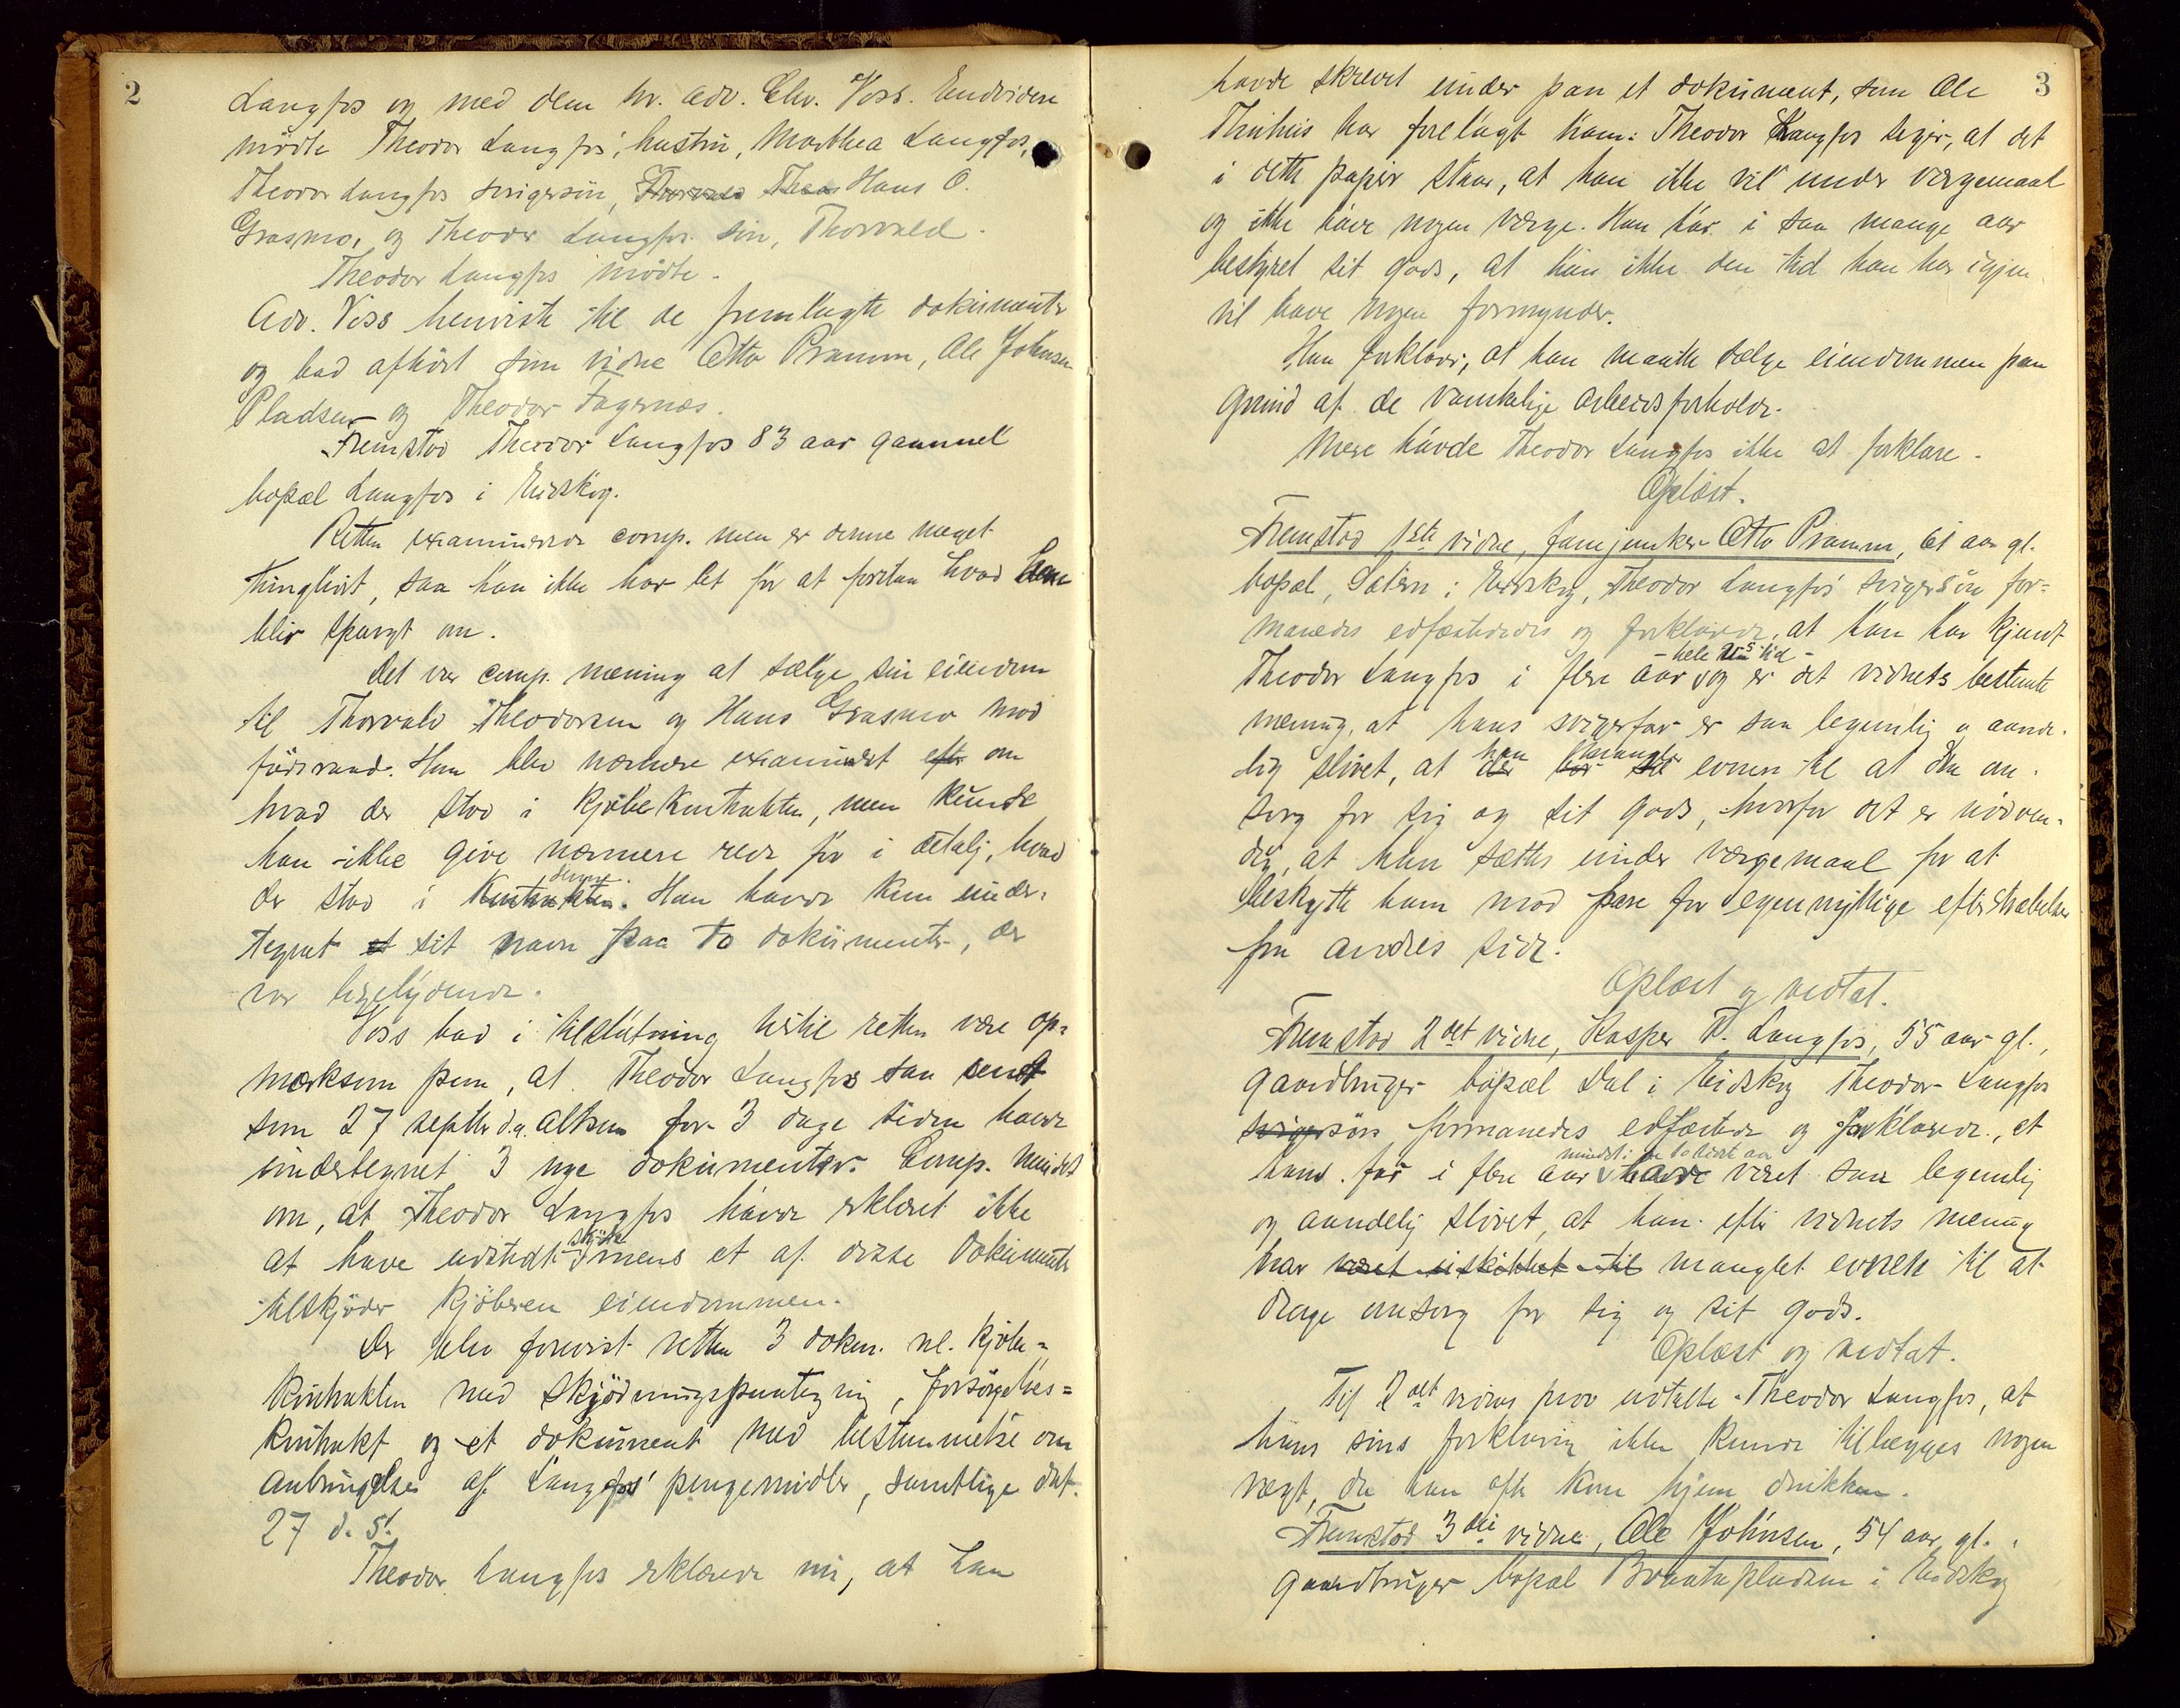 2
Langfos og med dem hr. adv. Chr. Voss. Endvidere
mødte Theodor Langfos', hustru, Marthea Langfos,
Theodor Langfos svigersøn, Hans O.
Grasmo, og Theodor Langfos søn, Thorvald.
Theodor Langfos mødte.
Adv. Voss henviste til de fremlagte dokumenter
og bad afhørt som vidne Otto Pramm, Ole Johnsen
Pladsen og Theodor Fagernæs.
Fremstod Theodor Langfos 83 aar gammel
bopæl Langfos i Eidskog.
Retten examinerede comp. men er denne meget
tunghørt, saa han ikke har let for at forstaa hvad han
blir spurgt om.
Det var comp. mening at sælge sin eiendom
til Thorvald Theodorsen og Hans Grasmo mod
föderaad. Han blev nærmere examineret efter om
hvad der stod i kjøbekontrakten, men kunde
han ikke give nærmere rede for i detalj, hvad
der stod i kontrakten denne. Han havde kun under-
tegnet et sit navn paa to dokumenter, der
var ligelydende.
Voss bad i tilslutning hertil retten være op-
mærksom paa, at Theodor Langfos saa sent
som 27 septbr d.a. altsaa for 3 dage siden havde
undertegnet 3 nye dokumenter. Comp. mindet
om, at Theodor Langfos havde erklæret ikke
at have udstedt skjøde mens et af disse dokumenter
tilskjøder kjøberen eiendommen.
Der blev forevist retten 3 dokum. nl. kjøbe-
kontrakten med skjødningspaategning, forsørgelses-
kontrakt og et dokument med bestemmelse om
anbringelse af Langfos' pengemidler, samtlige dat.
27 d. s.
Theodor Langfos erklærede nu, at han
3
havde skrevet under paa et dokument, som Ole
har forelagt ham. Theodor Langfos siger, at det
i dette papir staar, at han ikke vil under vergemaal
og ikke have nogen verge. Han har i saa mange aar
bestyret sit gods, at han ikke den tid han har igjen
vil have nogen formynder.
Han forklarer, at han maatte sælge eiendommen paa
grund af de vanskelige arbeidsforholde.
Mere havde Theodor Langfos ikke at forklare.
Oplæst.
Fremstod 1ste vidne, fanejunker Otto Pramm, 61 aar gl.
bopæl, Sætern i Eidskog, Theodor Langfos' svigersøn for-
manedes edfæstedes og forklarede, at han har kjendt
Theodor Langfos i flere aar - hele sin tid - og er det vidnets bestemte
mening, at hans svigerfar er saa legemlig og aande-
lig sløvet, at han mangler evnen til at dra om-
sorg for sig og sit gods, hvorfor det er nødven-
dig, at han sættes under vergemaal for at
beskytte ham mod fare for egennyttige efterstræbelser
fra andres side.
Oplæst og vedtat.
Fremstod 2det vidne, Kasper T. Langfos, 55 aar gl.,
gaardbruger bopæl Dal i Eidskog Theodor Langfos
svigersøn formanedes edfæstede og forklarede, at
hans far i flere aar mindst i de to sidste aar havde været saa legemlig
og aandelig sløvet, at han efter vidnets mening
har været uskikket til manglet evnen til at
drage omsorg for sig og sit gods.
Oplæst og vedtat.
Til 2det vidnes prov udtalte Theodor Langfos, at
hans søns forklaring ikke kunde tillægges nogen
vegt, da han ofte kom hjem drukken.
Fremstod 3die vidne, Ole Johnsen, 54 aar gl.
gaardbruger bopæl Braatapladsen i Eidskog